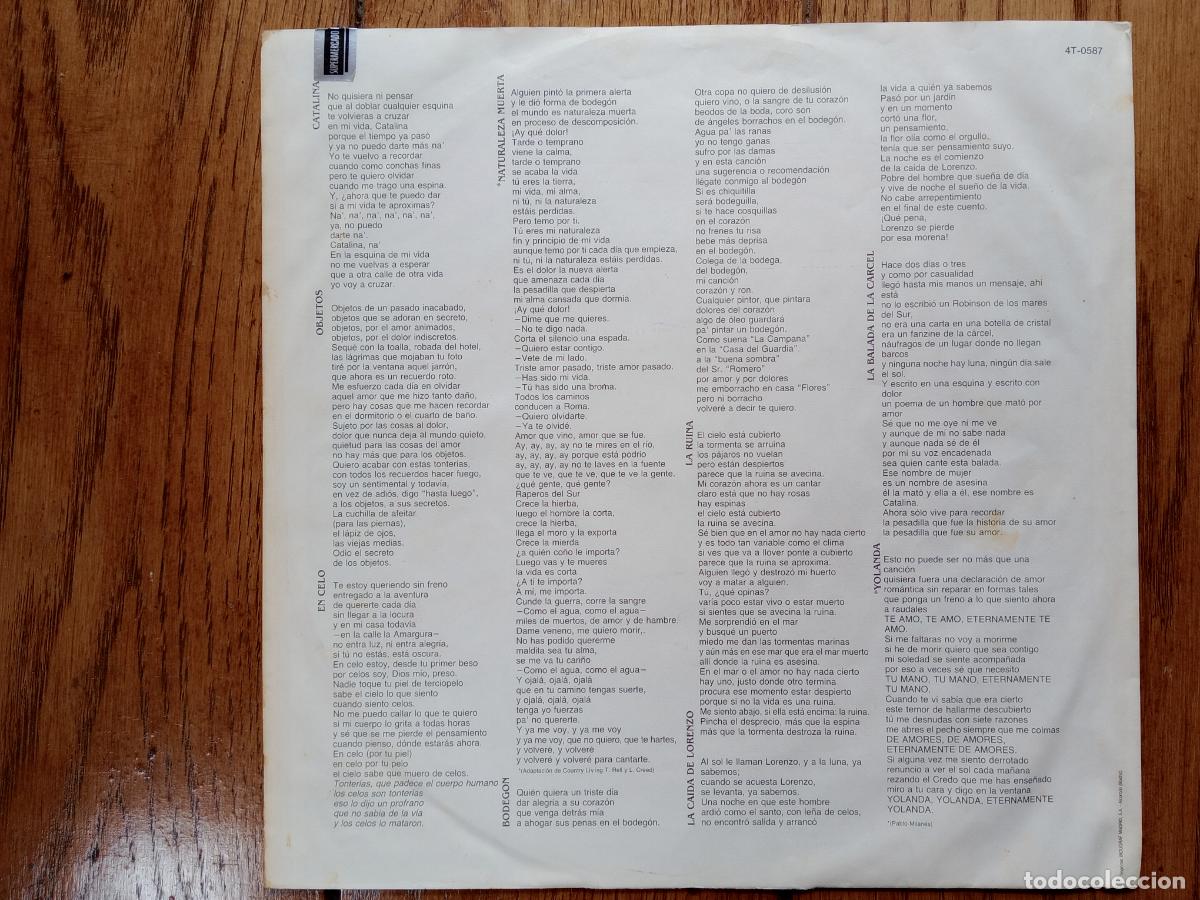 SUPERMERCADO
4T-0587
CATALINA
No quisiera ni pensar
que al doblar cualquier esquina
te volvieras a cruzar
en mi vida, Catalina
porque el tiempo ya pasó
y ya no puedo darte más na'
Yo te vuelvo a recordar
cuando como conchas finas
pero te quiero olvidar
cuando me trago una espina.
Y, ¿ahora que te puedo dar
si a mi vida te aproximas?
Na', na', na', na', na', na',
ya, no puedo
darte na'.
Catalina, na'
En la esquina de mi vida
no me vuelvas a esperar
que a otra calle de otra vida
yo voy a cruzar.
OBJETOS
Objetos de un pasado inacabado,
objetos que se adoran en secreto,
objetos, por el amor animados,
objetos, por el dolor indiscretos.
Sequé con la toalla, robada del hotel,
las lágrimas que mojaban tu foto
tiré por la ventana aquel jarrón,
que ahora es un recuerdo roto.
Me esfuerzo cada día en olvidar
aquel amor que me hizo tanto daño,
pero hay cosas que me hacen recordar
en el dormitorio o el cuarto de baño.
Sujeto por las cosas al dolor,
dolor que nunca deja al mundo quieto,
quietud para las cosas del amor
no hay más que para los objetos.
Quiero acabar con estas tonterías,
con todos los recuerdos hacer fuego,
soy un sentimental y todavía,
en vez de adiós, digo "hasta luego",
a los objetos, a sus secretos.
La cuchilla de afeitar
(para las piernas),
el lápiz de ojos,
las viejas medias.
Odio el secreto
de los objetos.
EN CELO
Te estoy queriendo sin freno
entregado a la aventura
de quererte cada día
sin llegar a la locura
y en mi casa todavía
—en la calle la Amargura—
no entra luz, ni entra alegría,
si tú no estás, está oscura.
En celo estoy, desde tu primer beso
por celos soy, Dios mío, preso.
Nadie toque tu piel de terciopelo
sabe el cielo lo que siento
cuando siento celos.
No me puedo callar lo que te quiero
si mi cuerpo lo grita a todas horas
y sé que se me pierde el pensamiento
cuando pienso, dónde estarás ahora.
En celo (por tu piel)
en celo por tu pelo
el cielo sabe que muero de celos.
Tonterías, que padece el cuerpo humano
los celos son tonterías
eso lo dijo un profano
que no sabía de la vía
y los celos lo mataron.
*NATURALEZA MUERTA
Alguien pintó la primera alerta
y le dió forma de bodegón
el mundo es naturaleza muerta
en proceso de descomposición.
¡Ay qué dolor!
Tarde o temprano
viene la calma,
tarde o temprano
se acaba la vida
tú eres la tierra,
mi vida, mi alma,
ni tú, ni la naturaleza
estáis perdidas.
Pero temo por ti.
Tú eres mi naturaleza
fin y principio de mi vida
aunque temo por ti cada día que empieza,
ni tú, ni la naturaleza estáis perdidas.
Es el dolor la nueva alerta
que amenaza cada día
la pesadilla que despierta
mi alma cansada que dormía.
¡Ay qué dolor!
—Dime que me quieres.
—No te digo nada.
Corta el silencio una espada.
—Quiero estar contigo.
—Vete de mi lado.
Triste amor pasado, triste amor pasado.
—Has sido mi vida.
—Tú has sido una broma.
Todos los caminos
conducen a Roma.
—Quiero olvidarte.
—Ya te olvidé.
Amor que vino, amor que se fue.
Ay, ay, ay, ay no te mires en el río,
ay, ay, ay, ay porque está podrío
ay, ay, ay, ay no te laves en la fuente
que te ve, que te ve, que te ve la gente.
¿qué gente, qué gente?
Raperos del Sur
Crece la hierba,
luego el hombre la corta,
crece la hierba,
llega el moro y la exporta
Crece la mierda
¿a quién coño le importa?
Luego vas y te mueres
la vida es corta
¿A ti te importa?
A mí, me importa.
Cunde la guerra, corre la sangre
—Como el agua, como el agua—
miles de muertos, de amor y de hambre.
Dame veneno, me quiero morir,.
No has podido quererme
maldita sea tu alma,
se me va tu cariño
—Como el agua, como el agua—
Y ojalá, ojalá, ojalá
que en tu camino tengas suerte,
y ojalá, ojalá, ojalá
tenga yo fuerzas
pa' no quererte.
Y ya me voy, y ya me voy
y ya me voy, que no quiero, que te hartes,
y volveré, y volveré
y volveré, y volveré para cantarte.
*(Adaptación de Country Living T. Rell y L. Creed)
BODEGON
Quién quiera un triste día
dar alegría a su corazón
que venga detrás mía
a ahogar sus penas en el bodegón.
Otra copa no quiero de desilusión
quiero vino, o la sangre de tu corazón
beodos de la boda, coro son
de ángeles borrachos en el bodegón.
Agua pa' las ranas
yo no tengo ganas
sufro por las damas
y en esta canción
una sugerencia o recomendación
llégate conmigo al bodegón
Si es chiquitilla
será bodeguilla,
si te hace cosquillas
en el corazón
no frenes tu risa
bebe más deprisa
en el bodegón.
Colega de la bodega,
del bodegón,
mi canción
corazón y ron.
Cualquier pintor, que pintara
dolores del corazón
algo de óleo guardará
pa' pintar un bodegón.
Como suena "La Campana"
en la "Casa del Guardia".
a la "buena sombra"
del Sr. "Romero"
por amor y por dolores
me emborracho en casa "Flores"
pero ni borracho
volveré a decir te quiero.
LA RUINA
El cielo está cubierto
la tormenta se arruina
los pájaros no vuelan
pero están despiertos
parece que la ruina se avecina.
Mi corazón ahora es un cantar
claro está que no hay rosas
hay espinas
el cielo está cubierto
la ruina se avecina.
Sé bien que en el amor no hay nada cierto
y es todo tan variable como el clima
si ves que va a llover ponte a cubierto
parece que la ruina se aproxima.
Alguien llegó y destrozó mi huerto
voy a matar a alguien.
Tú, ¿qué opinas?
varía poco estar vivo o estar muerto
si sientes que se avecina la ruina.
Me sorprendió en el mar
y busqué un puerto
miedo me dan las tormentas marinas
y aún más en ese mar que era el mar muerto
allí donde la ruina es asesina.
En el mar o el amor no hay nada cierto
hay uno, justo donde otro termina
procura ese momento estar despierto
porque si no la vida es una ruina.
Me siento abajo, si ella está encima: la ruina.
Pincha el desprecio, más que la espina
más que la tormenta destroza la ruina.
LA CAIDA DE LORENZO
Al sol le llaman Lorenzo, y a la luna, ya
sabemos;
cuando se acuesta Lorenzo,
se levanta, ya sabemos.
Una noche en que este hombre
ardió como el santo, con leña de celos,
no encontró salida y arrancó
la vida a quién ya sabemos
Pasó por un jardín
y en un momento
cortó una flor,
un pensamiento,
la flor olía como el orgullo,
tenía que ser pensamiento suyo.
La noche es el comienzo
de la caída de Lorenzo.
Pobre del hombre que sueña de día
y vive de noche el sueño de la vida.
No cabe arrepentimiento
en el final de este cuento.
¡Qué pena,
Lorenzo se pierde
por esa morena!
LA BALADA DE LA CARCEL
Hace dos días o tres
y como por casualidad
llegó hasta mis manos un mensaje, ahí
está
no lo escribió un Robinson de los mares
del Sur,
no era una carta en una botella de cristal
era un fanzine de la cárcel,
náufragos de un lugar donde no llegan
barcos
y ninguna noche hay luna, ningún día sale
el sol.
Y escrito en una esquina y escrito con
dolor
un poema de un hombre que mató por
amor
Sé que no me oye ni me ve
y aunque de mí no sabe nada
y aunque nada sé de él
por mí su voz encadenada
sea quien cante esta balada.
Ese nombre de mujer
es un nombre de asesina
él la mató y ella a él, ese nombre es
Catalina.
Ahora sólo vive para recordar
la pesadilla que fue la historia de su amor
la pesadilla que fue su amor.
*YOLANDA
Esto no puede ser no más que una
canción
quisiera fuera una declaración de amor
romántica sin reparar en formas tales
que ponga un freno a lo que siento ahora
a raudales
TE AMO, TE AMO, ETERNAMENTE TE
AMO.
Si me faltaras no voy a morirme
si he de morir quiero que sea contigo
mi soledad se siente acompañada
por eso a veces sé que necesito
TU MANO, TU MANO, ETERNAMENTE
TU MANO.
Cuando te vi sabía que era cierto
este temor de hallarme descubierto
tú me desnudas con siete razones
me abres el pecho siempre que me colmas
DE AMORES, DE AMORES,
ETERNAMENTE DE AMORES.
Si alguna vez me siento derrotado
renuncio a ver el sol cada mañana
rezando el Credo que me has enseñado
miro a tu cara y digo en la ventana
YOLANDA, YOLANDA, ETERNAMENTE
YOLANDA.
*(Pablo Milanés)
todocoleccion